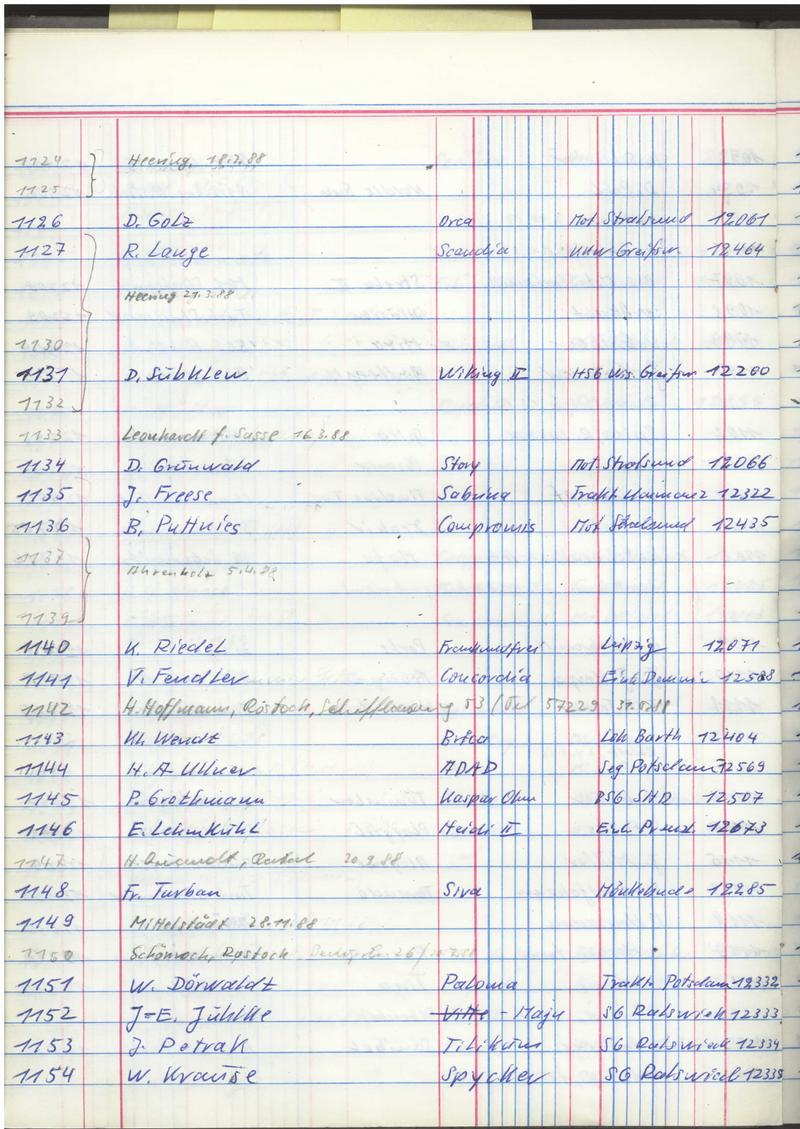 1124 } Heering, 18.2.88
1125
1126 D. Golz Orca Mot. Stralsund 12061
1127 R. Lange Scandia Greifsw. 12464
Heering 21.3.88
1130
1131 D. Sübklew Wiking II HSG Wis. Greifsw 12200
1132
1133 Leonhardt f. Sasse 16.3.88
1134 D. Grünwald Story Mot. Stralsund 12066
1135 J. Freese Sabrina Trakt 12322
1136 B. Puttnies Compromis Mot Stralsund 12435
1137
Ahrenholz 5.4.88
1139
1140 K. Riedel Frankundfrei Leipzig 12071
1141 V. Fendler Concordia Einh. Demmin
1142 H. Hoffmann, Rostock, 53 / Tel 57229
1143 Kh Wendt Lok Barth 12404
1144 H. A Ullner ADAD Seg Potsdam 12569
1145 P. Grothmann Kaspar Ohm BSG SHD 12507
1146 E. Lehmkühl Heidi II Einh. Prenzl. 12673
1147 20.9.88
1148 Fr. Turban Siva Mönkebude 12285
1149 Mittelstädt 28.11.88
1150 Rostock
1151 W. Dörwaldt Paloma Trakt. Potsdam 12332
1152 J-E. Jühlke Vitte - Maju SG Ralswiek 12333
1153 J. Petrak Tilikum SG Ralswiek 12334
1154 W. Krause Spycker SG Ralswiek 12335